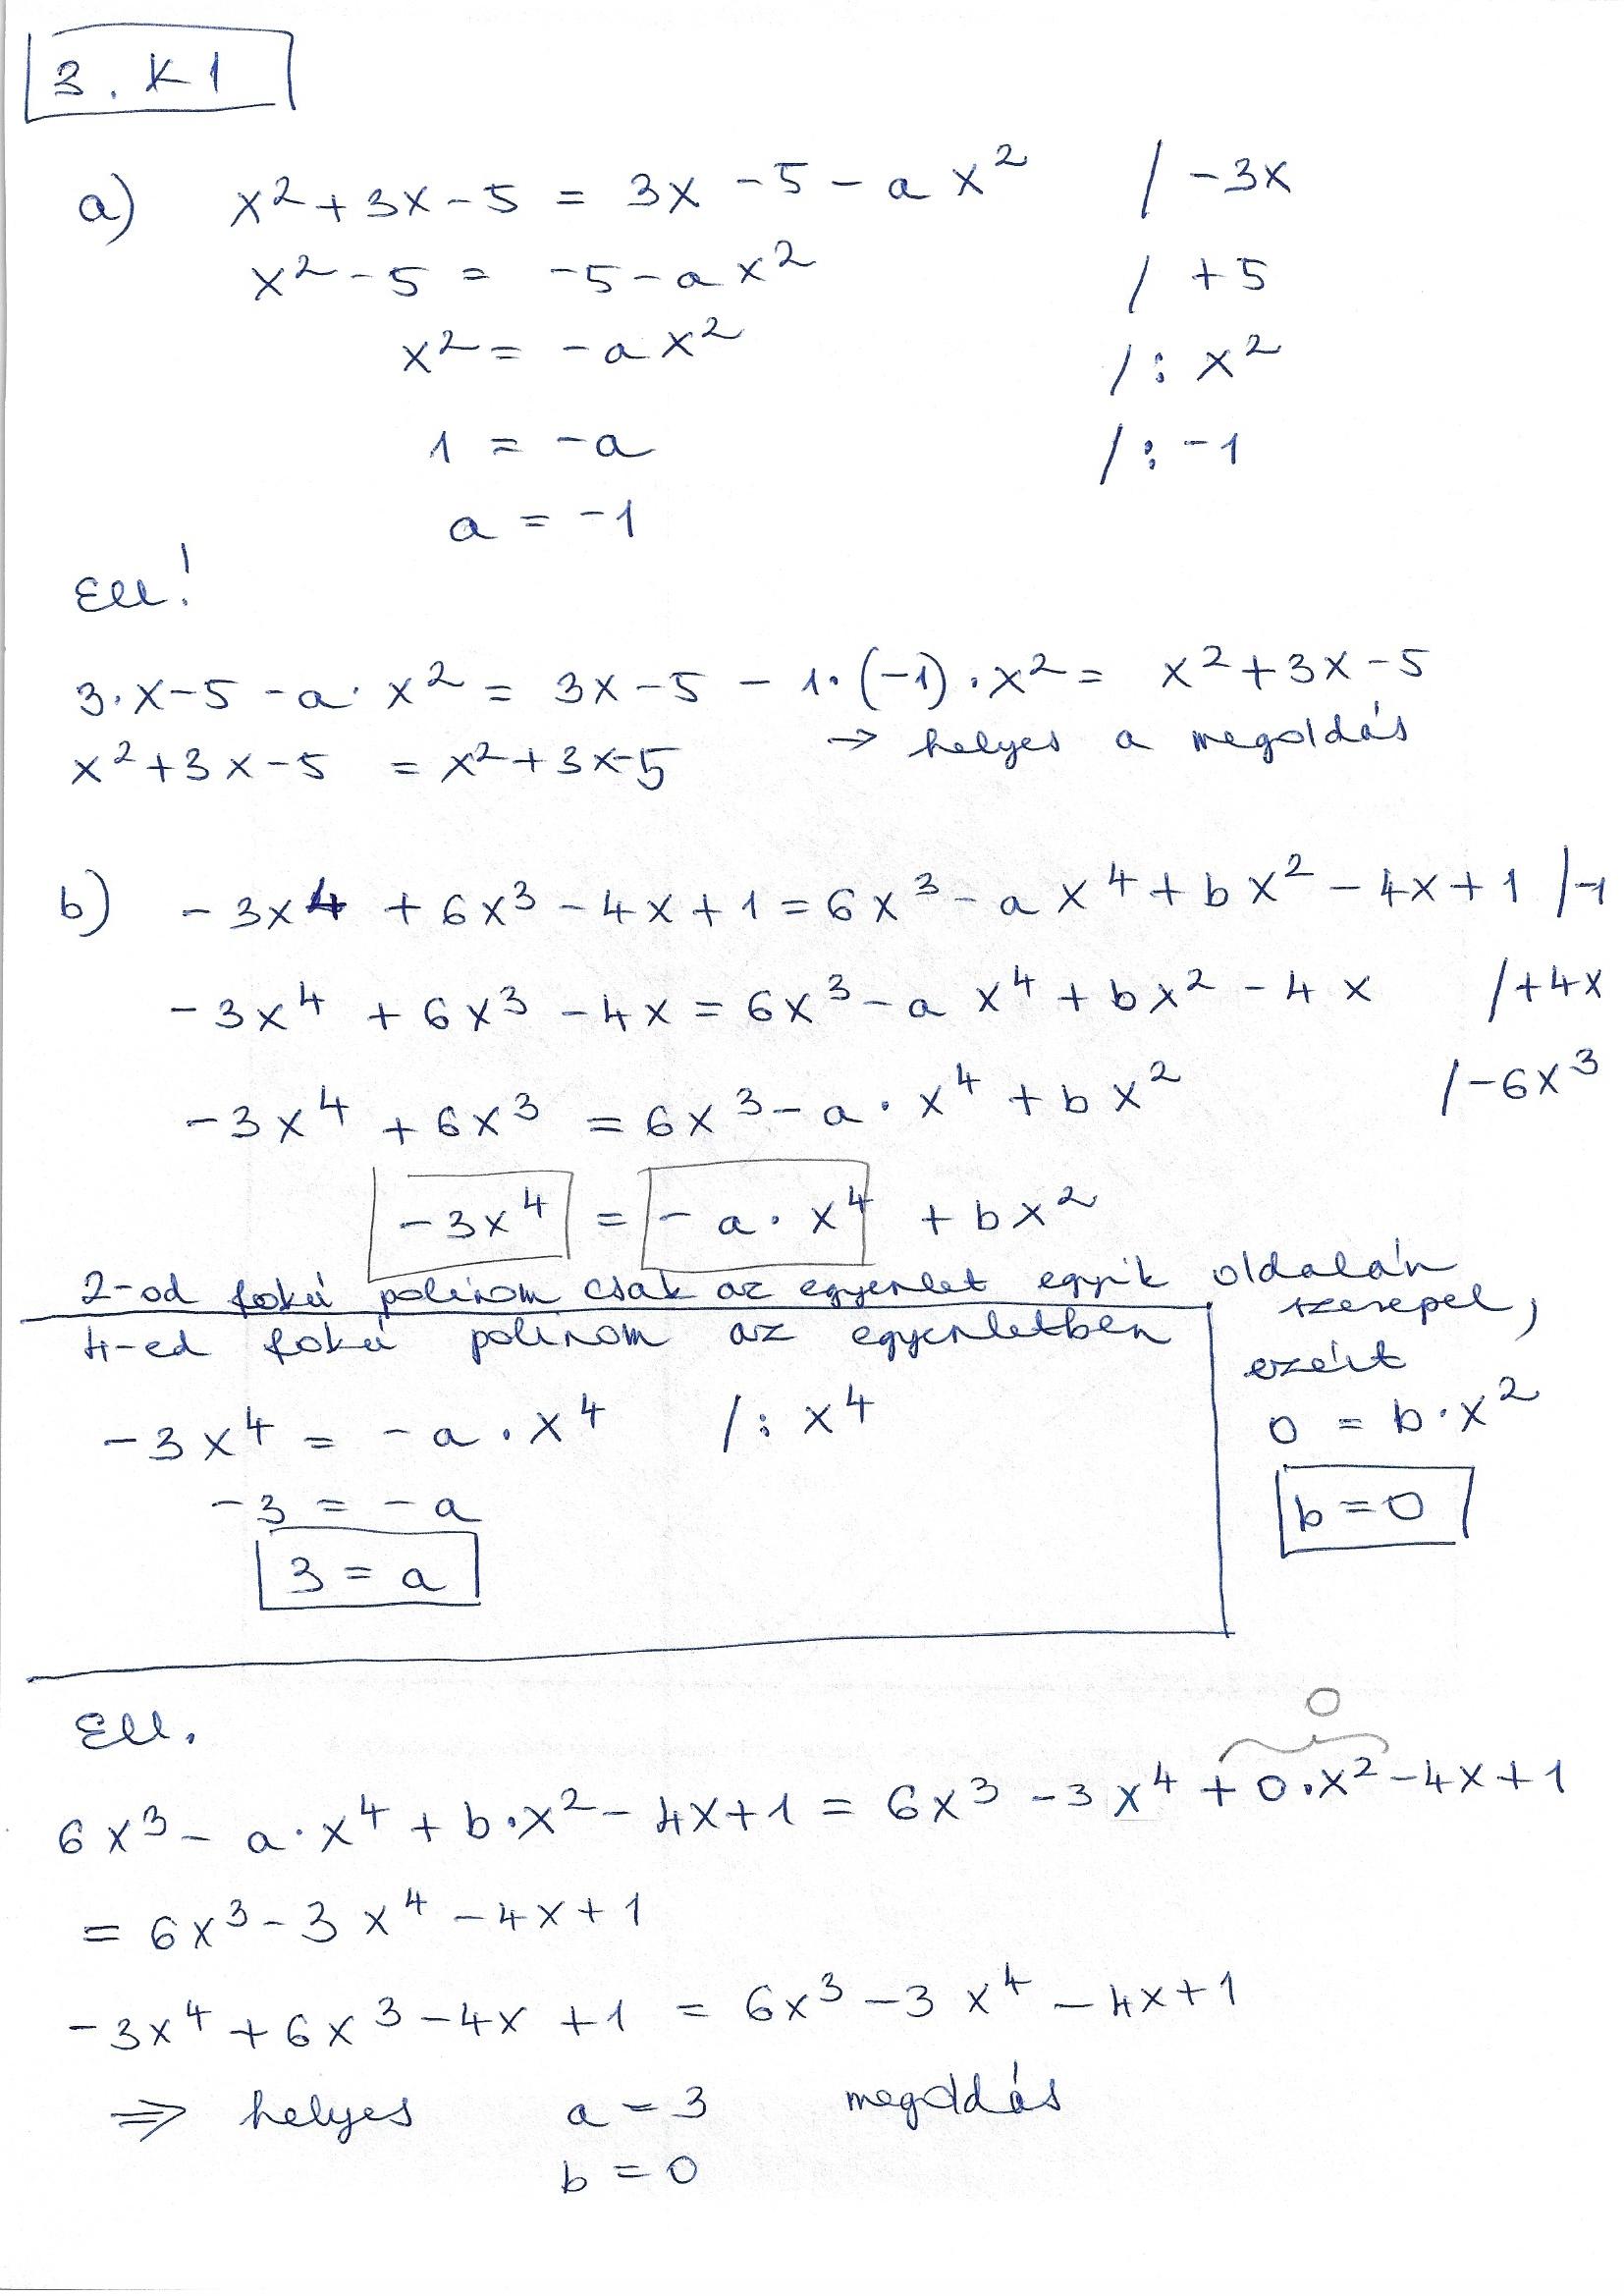 3. K1
a) x² + 3x - 5 = 3x - 5 - a x² / -3x
x² - 5 = -5 - a x² / +5
x² = -a x² / : x²
1 = -a / : -1
a = -1
Ell!
3·x - 5 - a· x² = 3x - 5 - 1·(-1)·x² = x² + 3x - 5
x² + 3x - 5 = x² + 3x - 5 → helyes a megoldás
b) -3x4 + 6x³ - 4x + 1 = 6x³ - a x⁴ + b x² - 4x + 1 /-1
-3x⁴ + 6x³ - 4x = 6x³ - a x⁴ + bx² - 4x /+4x
-3x⁴ + 6x³ = 6x³ - a · x⁴ + b x² /-6x³
-3x⁴ = - a · x⁴ + b x²
2-od fokú polinom csak az egyenlet egyik oldalán
szerepel,
ezért
0 = b·x²
b = 0
4-ed fokú polinom az egyenletben
-3x⁴ = -a · x⁴ / : x⁴
-3 = -a
3 = a
Ell.
0
6x³ - a·x⁴ + b·x² - 4x + 1 = 6x³ - 3x⁴ + 0·x² - 4x + 1
= 6x³ - 3x⁴ - 4x + 1
-3x⁴ + 6x³ - 4x + 1 = 6x³ - 3x⁴ - 4x + 1
⇒ helyes a = 3 megoldás
b = 0